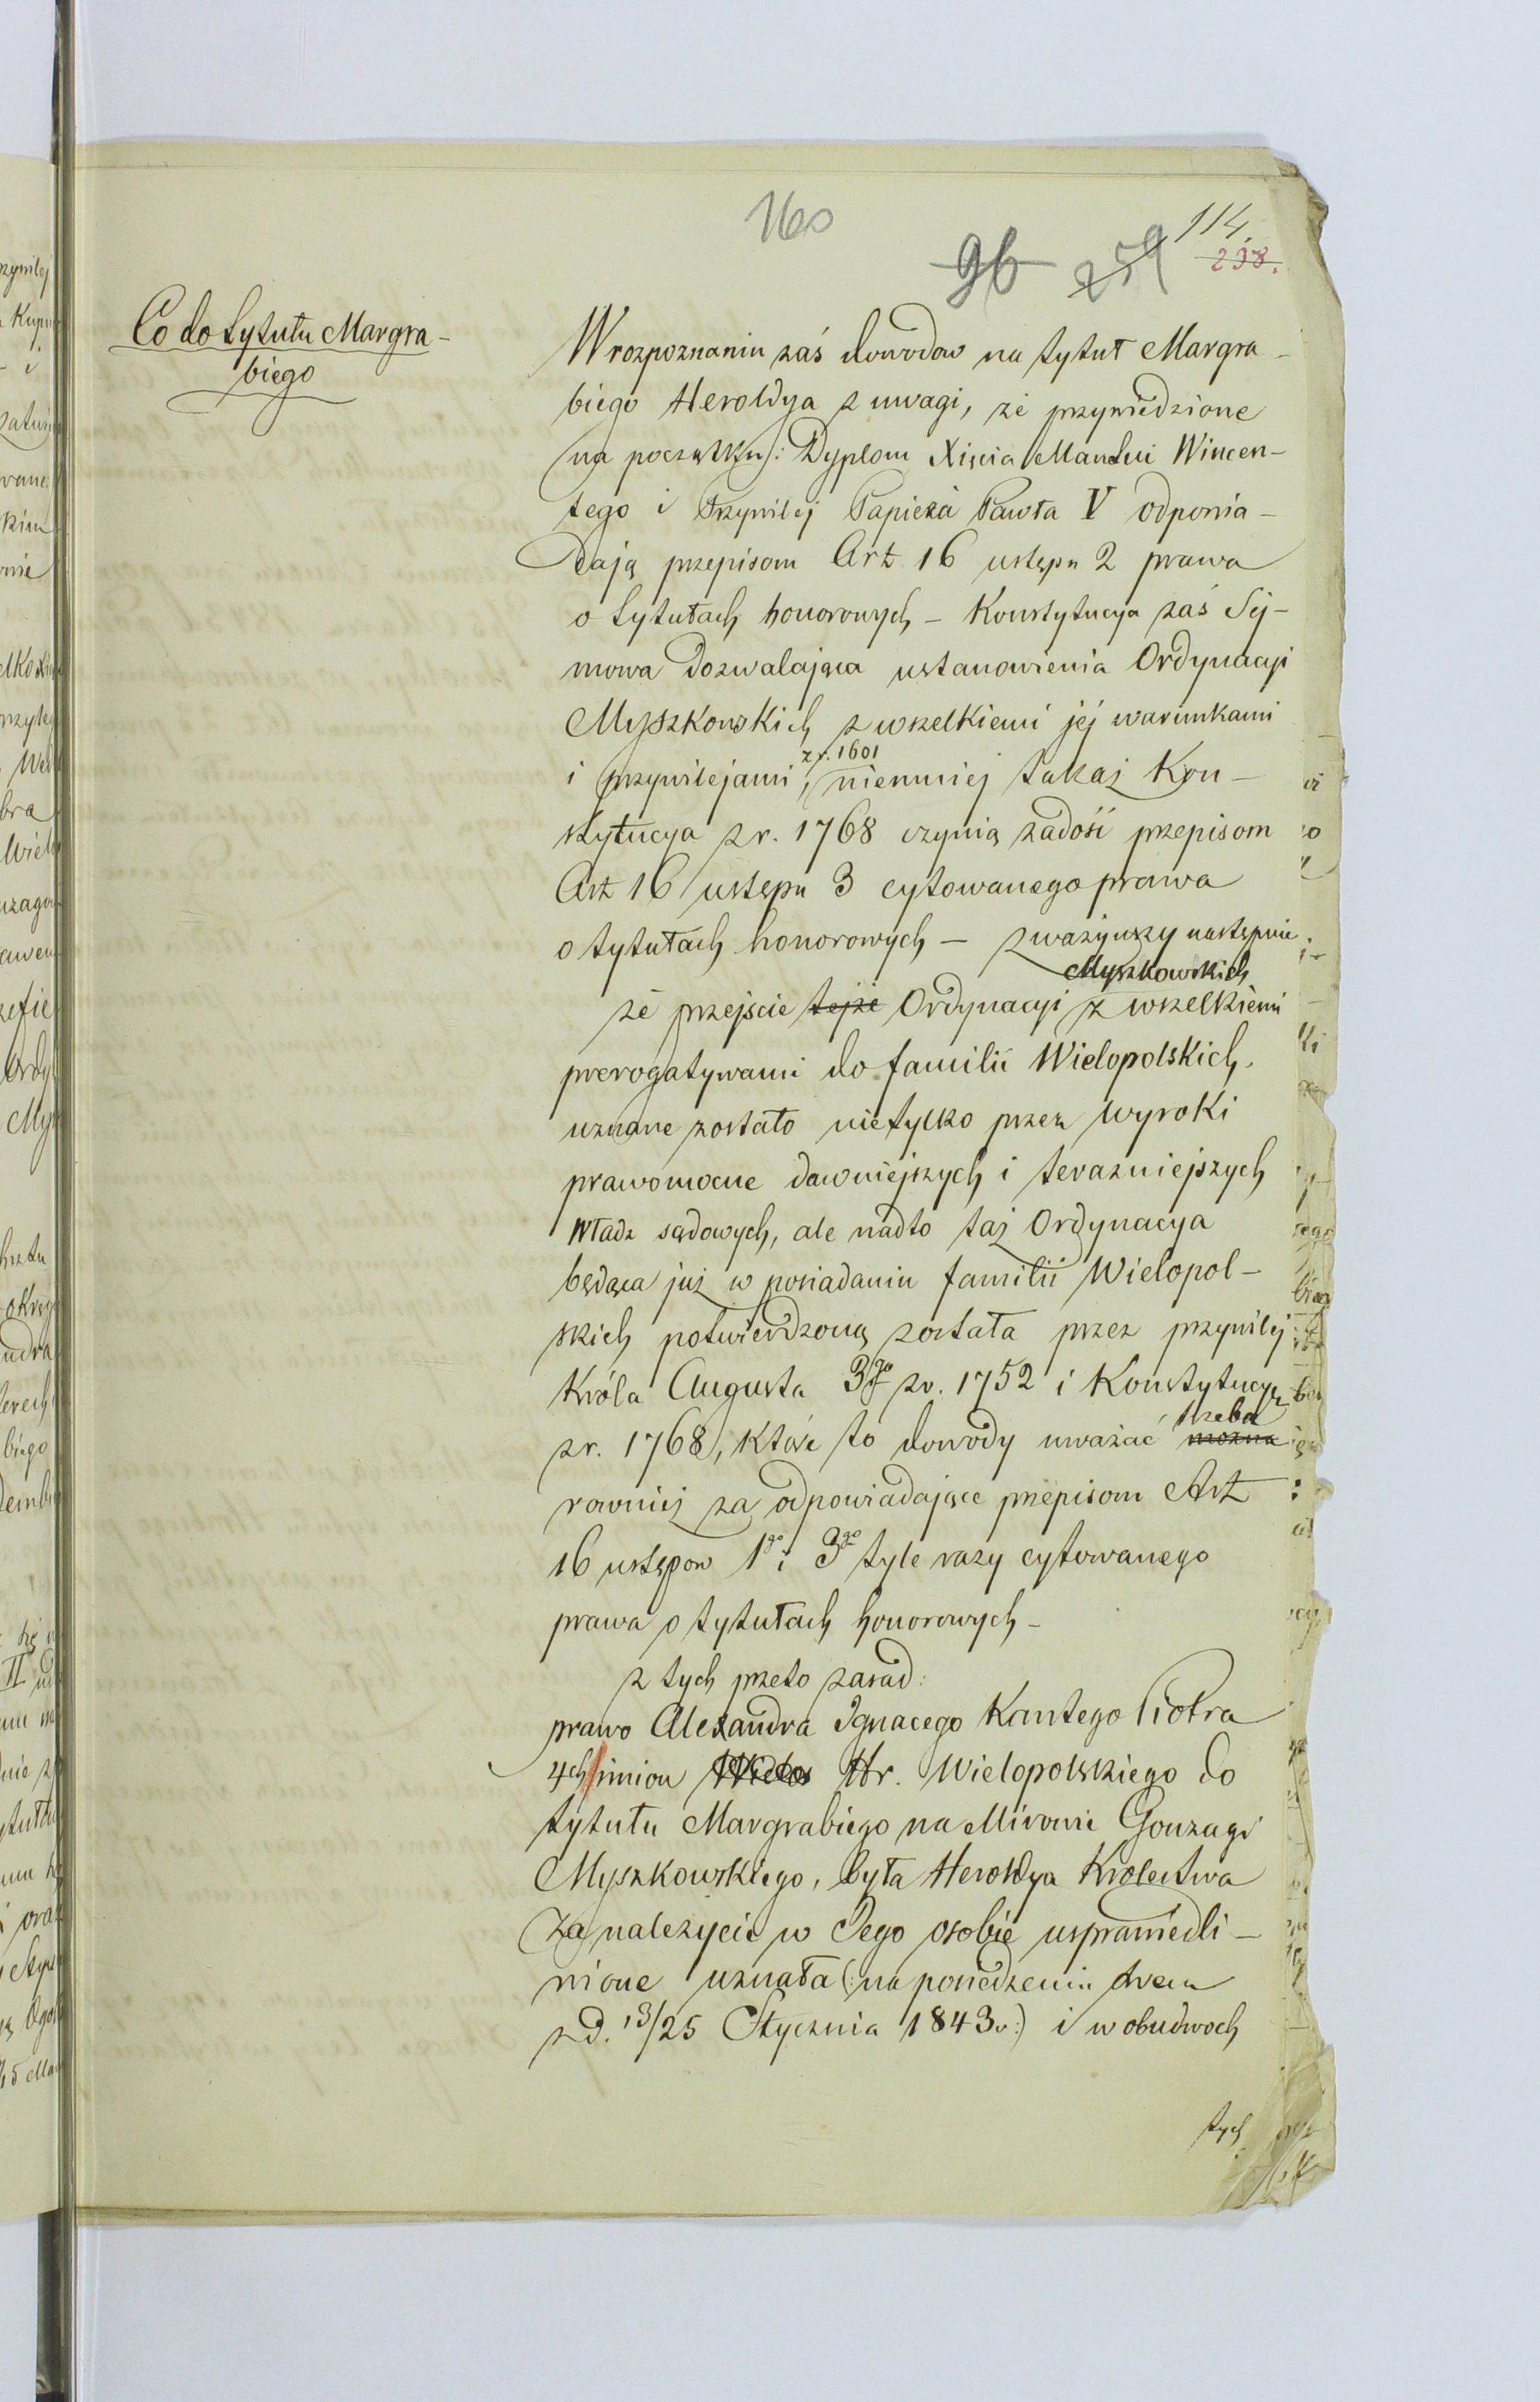 160
114.
96 259 238.
Co do tytułu Margra-
biego
W rozpoznaniu zaś dowodow na tytuł Margra-
biego Heroldya z uwagi, że przywiedzione
(na początku): Dyplom Xięcia Mantui Wincen-
tego i Przywilej Papieża Pawła V odpowia-
dają przepisom Art 16 ustępu 2 prawa
o tytułach honorowych – Konstytucya zaś Sej-
mowa dozwalająca ustanowienia Ordynacyi
Myszkowskich z wszelkiemi jej warunkami
z r. 1601
i przywilejami, niemniej takaż Kon-
stytucya z r. 1768 czynią zadość przepisom
Art 16 ustępu 3 cytowanego prawa
o tytułach honorowych – zważywszy następnie
Myszkowskich
że przejście tejże Ordynacyi z wszelkiemi
prerogatywami do familii Wielopolskich.
uznane zostało nietylko przez wyroki
prawomocne dawniejszych i terazniejszych
Władz sądowych, ale nadto taż Ordynacya
będąca już w posiadaniu familii Wielopol-
skich potwierdzoną została przez przywilej
Króla Augusta 3go z r. 1752 i Konstytucyę
trzeba
z r. 1768, które to dowody uważać można
rowniej za odpowiadające przepisom Art
16 ustępow 1go i 3go tyle razy cytowanego
prawa o tytułach honorowych –
z tych przeto zasad:
prawo Alexandra Ignacego Kantego Piotra
4ch imion Wielo Hr. Wielopolskiego do
tytułu Margrabiego na Mirowie Gonzagi
Myszkowskiego, była Heroldya Krolestwa
za należycie w Jego osobie usprawiedli-
wione uznała (: na posiedzeniu swem
z d. 13/25 Stycznia 1843 r:) i w obudwoch
tych